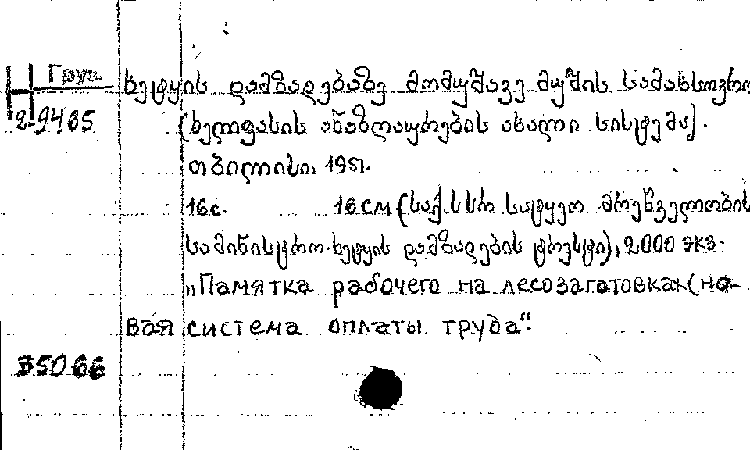 Груз.
ხეტყის დამზადებაზე მომუშავე მუშის სამახსოვრო
2-9465
(ხელფასის ანაზღაურების ახალი სისტემა).
თბილისი, 1951.
16с. 16 см (საქ.სსრ სატყეო მრეწველობის
სამინისტრო. ხეტყის დამზადების ტრესტი), 2000 экз.
„Памятка рабочего на лесозаготовках (но-
вая система оплаты труда".
35066